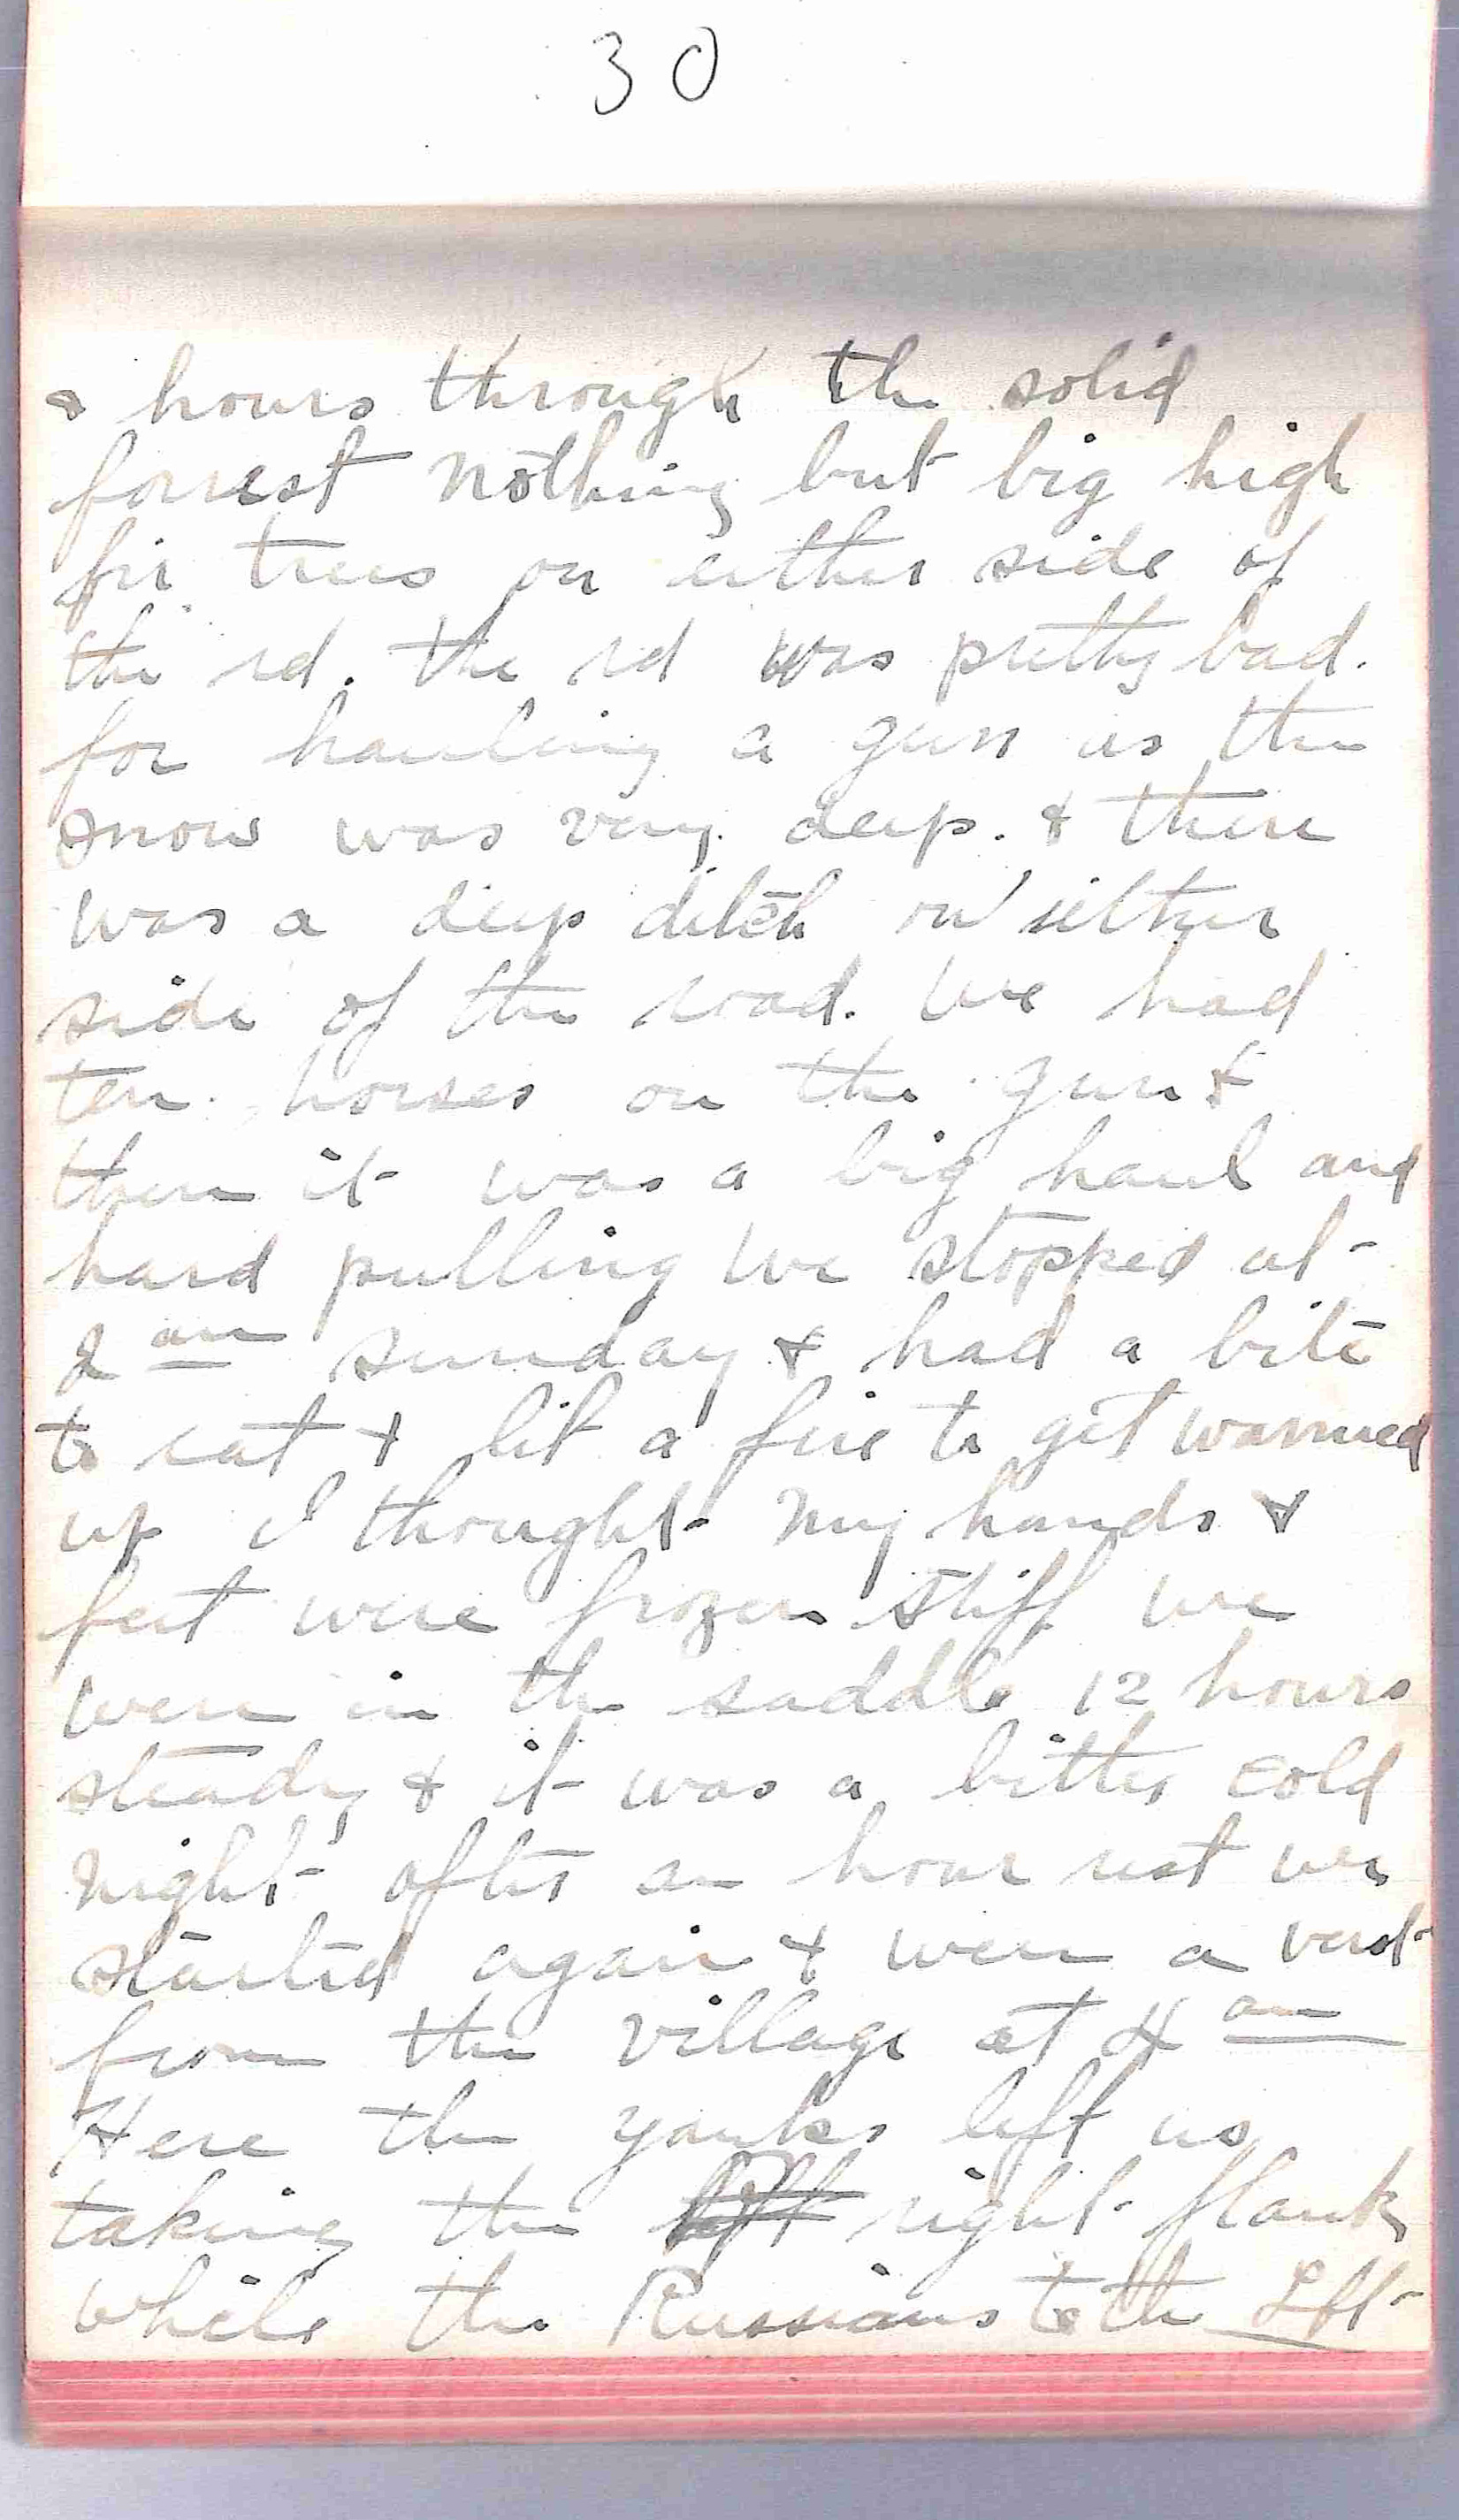 30
& hours through the solid
forrest nothing but big high
fir trees on either side of
the rd. the rd was pretty bad.
for hauling a gun as the
snow was very deep. & there
was a deep ditch on either
side of the road. We had
ten horses on the gun &
then it was a big haul and
hard pulling We stopped at
2 am Sunday & had a bite
to eat & lit a fire to get warmed
up I thought my hands &
feet were frozen stiff we
were in the saddle 12 hours
steady & it was a bitter cold
night after an hour rest we
started again & were a verst
from the village at 4 am
Here the yanks left us
taking the left right flank
while the Russians to the Left